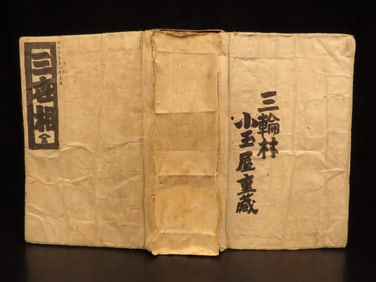 三輪村
小玉屋重蔵
三世相
全